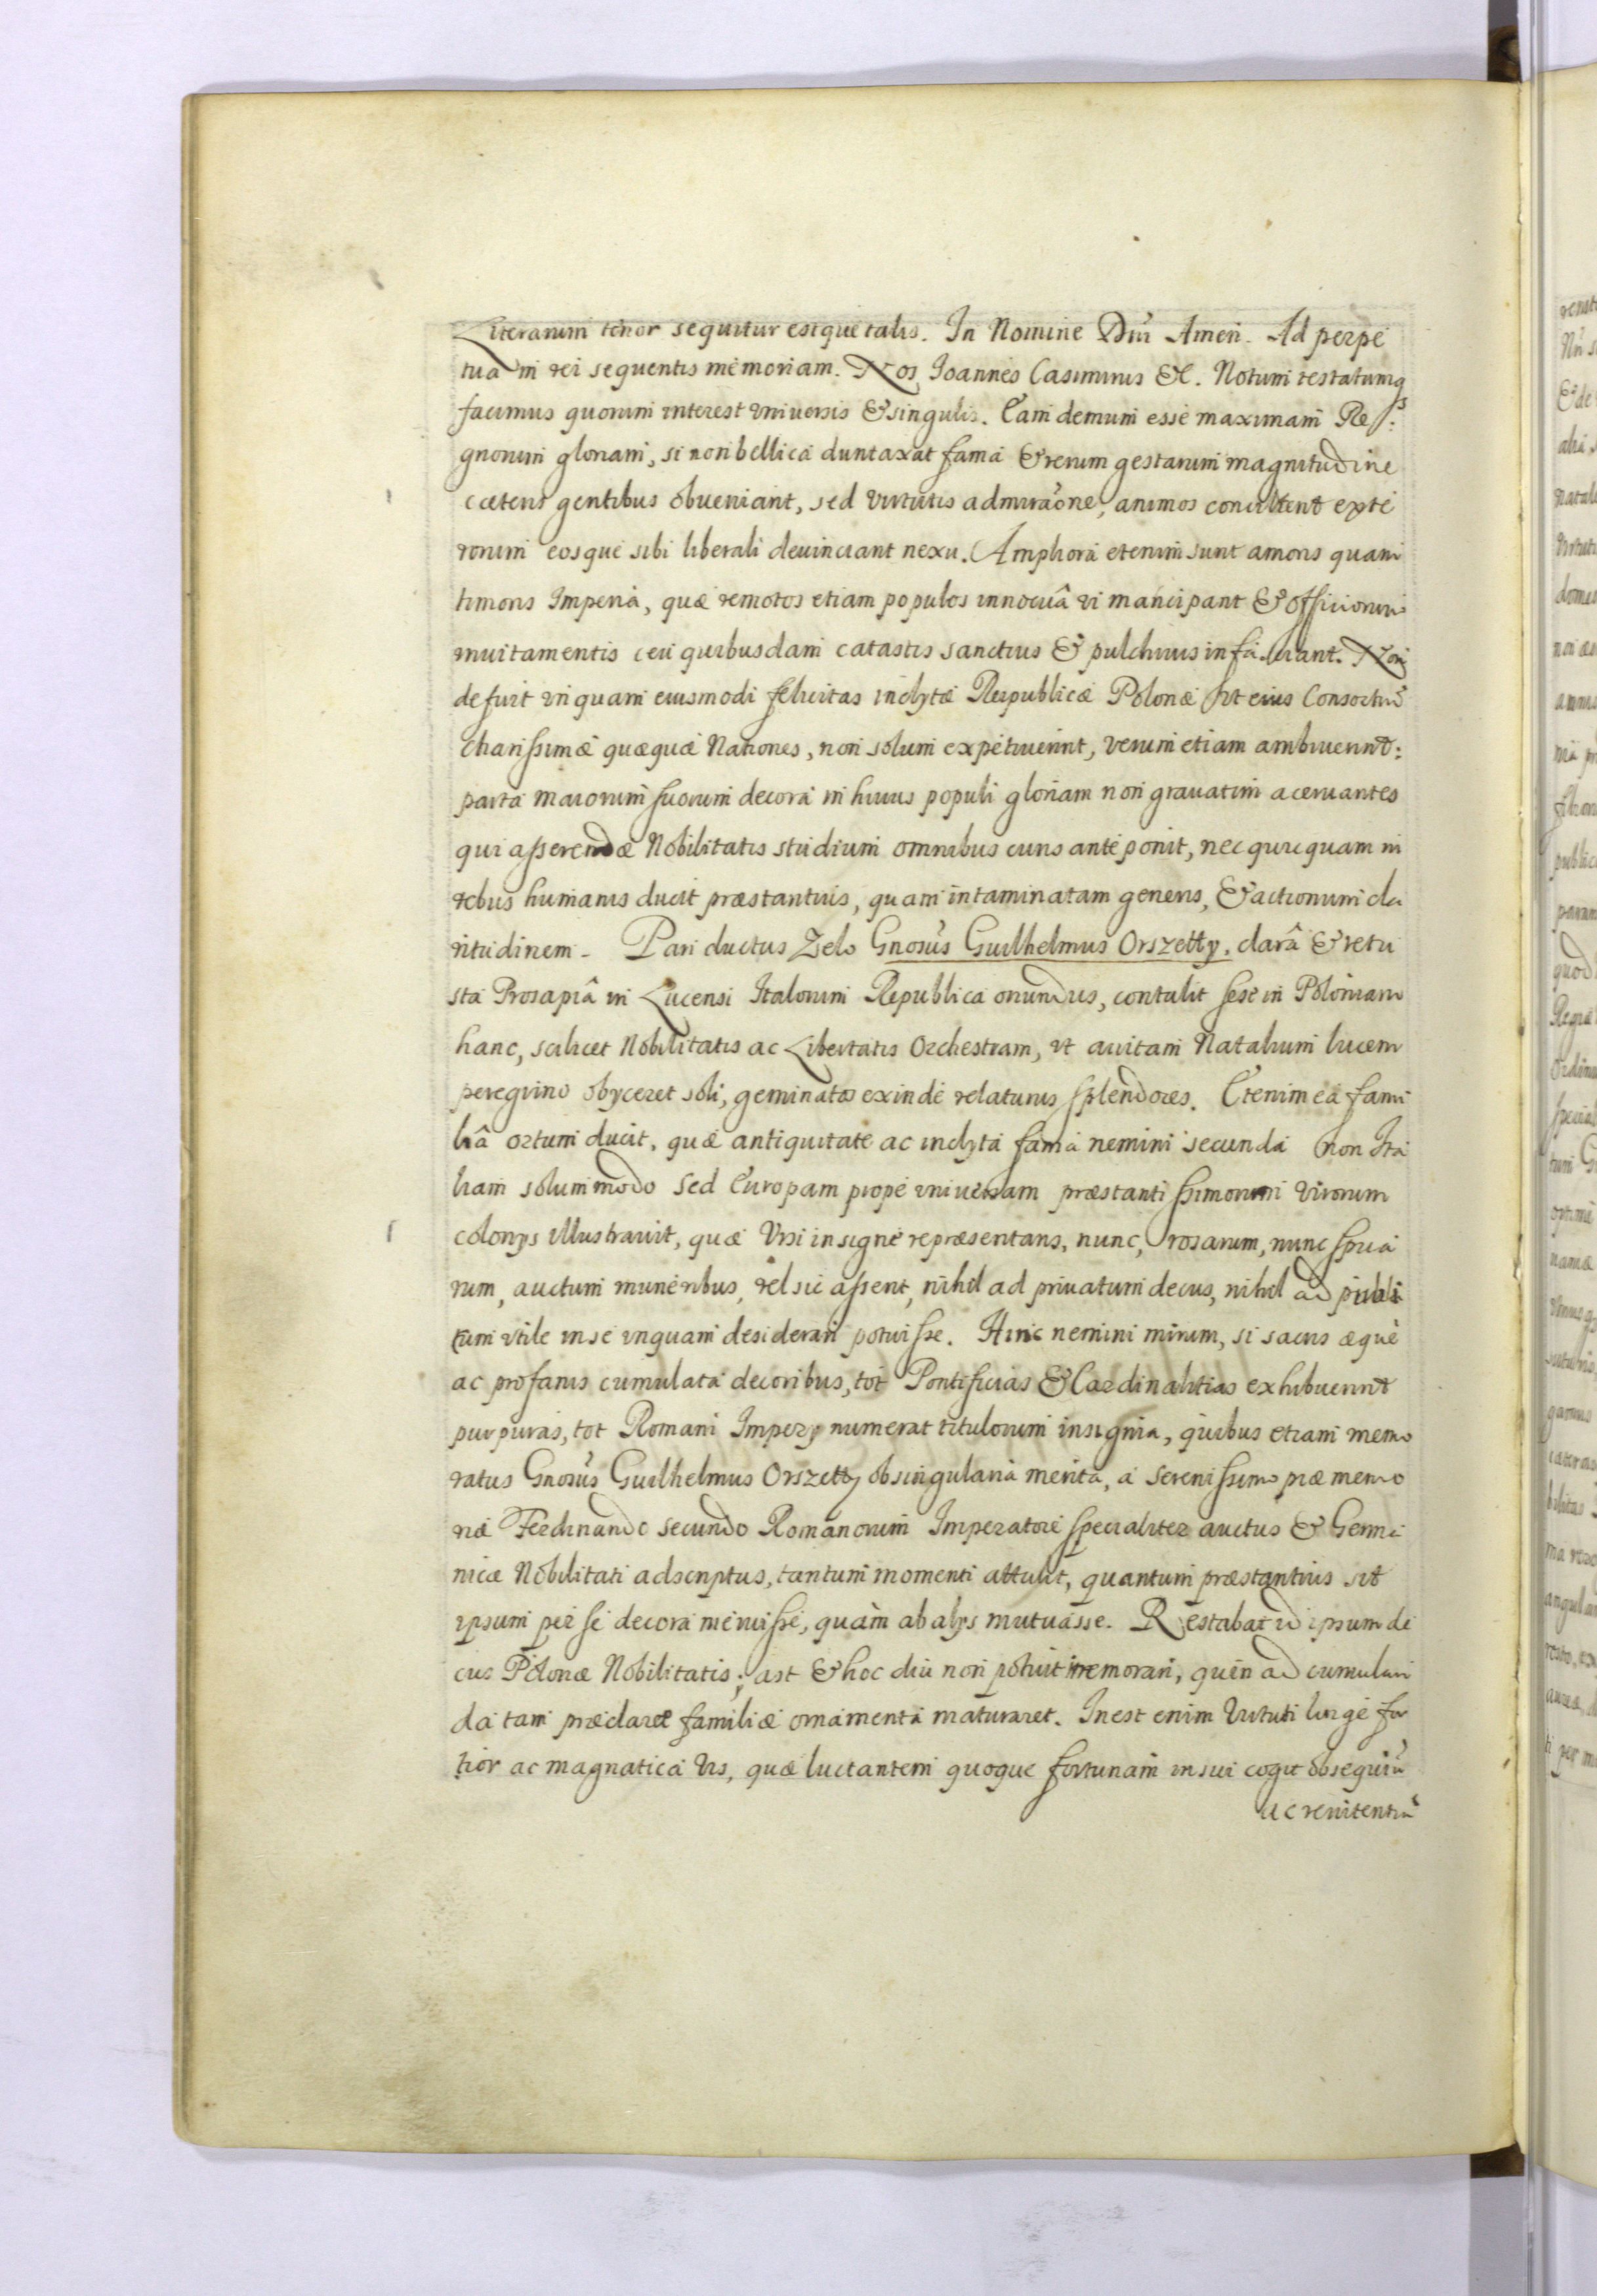 Literarum tenor sequitur estque talis. In Nomine Dni Amen. Ad perpe
tuam rei sequentis memoriam. Nos Joannes Casimirus &c. Notum testatumq3
facimus quorum interest universis & singulis. Eam demum esse maximam Re
gnorum gloriam, si non bellica duntaxat fama & rerum gestarum magnitudine
cæteris gentibus obueniant, sed virtutis admiraõne, animos concilient exte
rorum eosque sibi liberali deuinciant nexu. Ampliora etenim sunt amoris quam
timoris Imperia, quæ remotos etiam populos innocuâ vi mancipant & officiorum
inuitamentis ceu quibusdam catastis sanctius & pulchrius Non
defuit vnquam eiusmodi felicitas inclytæ Reipublicæ Polonæ vt eius Consortiũ
charissimæ quæquæ Nationes, non solum expetiuerint, verum etiam ambiuerint:
parta maiorum suorum decora in huius populi gloriam non grauatim aceruantes
qui asserendæ Nobilitatis studium omnibus curis anteponit, nec quicquam in
rebus humanis ducit præstantius, quam intaminatam generis, & actionum cla
ritudinem. Pari ductus Zelo Gnosus Guilhelmus Orszetty, clarâ & vetu
sta Prosapiâ in Lucensi Italorum Republica oriundus, contulit sese in Poloniam
hanc, scilicet Nobilitatis ac Libertatis Orchestram, vt auitam Natalium lucem
peregrino obyceret soli, geminatos exinde relaturus splendores. Etenim eâ fami
liâ ortum ducit, quæ antiquitate ac inclyta fama nemini secunda non Ita
liam solummodo sed Europam prope vniuersam præstantissimorum virorum
colonys illustrauit, quæ Vrsi insigne repræsentans, nunc, rosarum, nunc spica
rum, auctum muneribus, vel sic asserit, nihil ad priuatum decus, nihil ad publi
cum vtile in se vnquam desiderari potuisse. Hinc nemini mirum, si sacris æquè
ac profanis cumulata decoribus, tot Pontificias & Cardinalitias exhibuerint
purpuras, tot Romani Impery numerat titulorum insignia, quibus etiam memo
ratus Gnosus Guilhelmus Orszetty ob singularia merita, a serenissimo piæ memo
riæ Ferdinando secundo Romanorum Imperatore specialiter auctus & Germa
nicæ Nobilitati adscriptus, tantum momenti attulit, quantum præstantius sit
ipsum per se decora meruisse, quàm ab alys mutuasse. Restabat id ipsum de
cus Polonæ Nobilitatis; ast & hoc diu non potuit remorari, quin ad cumulan
da tam præclaræ familiæ ornamenta maturaret. Inest enim Virtuti longe for
tior ac magnatica vis, quæ luctantem quoque fortunam in sui cogit obsequiũ
ac renitentiũ